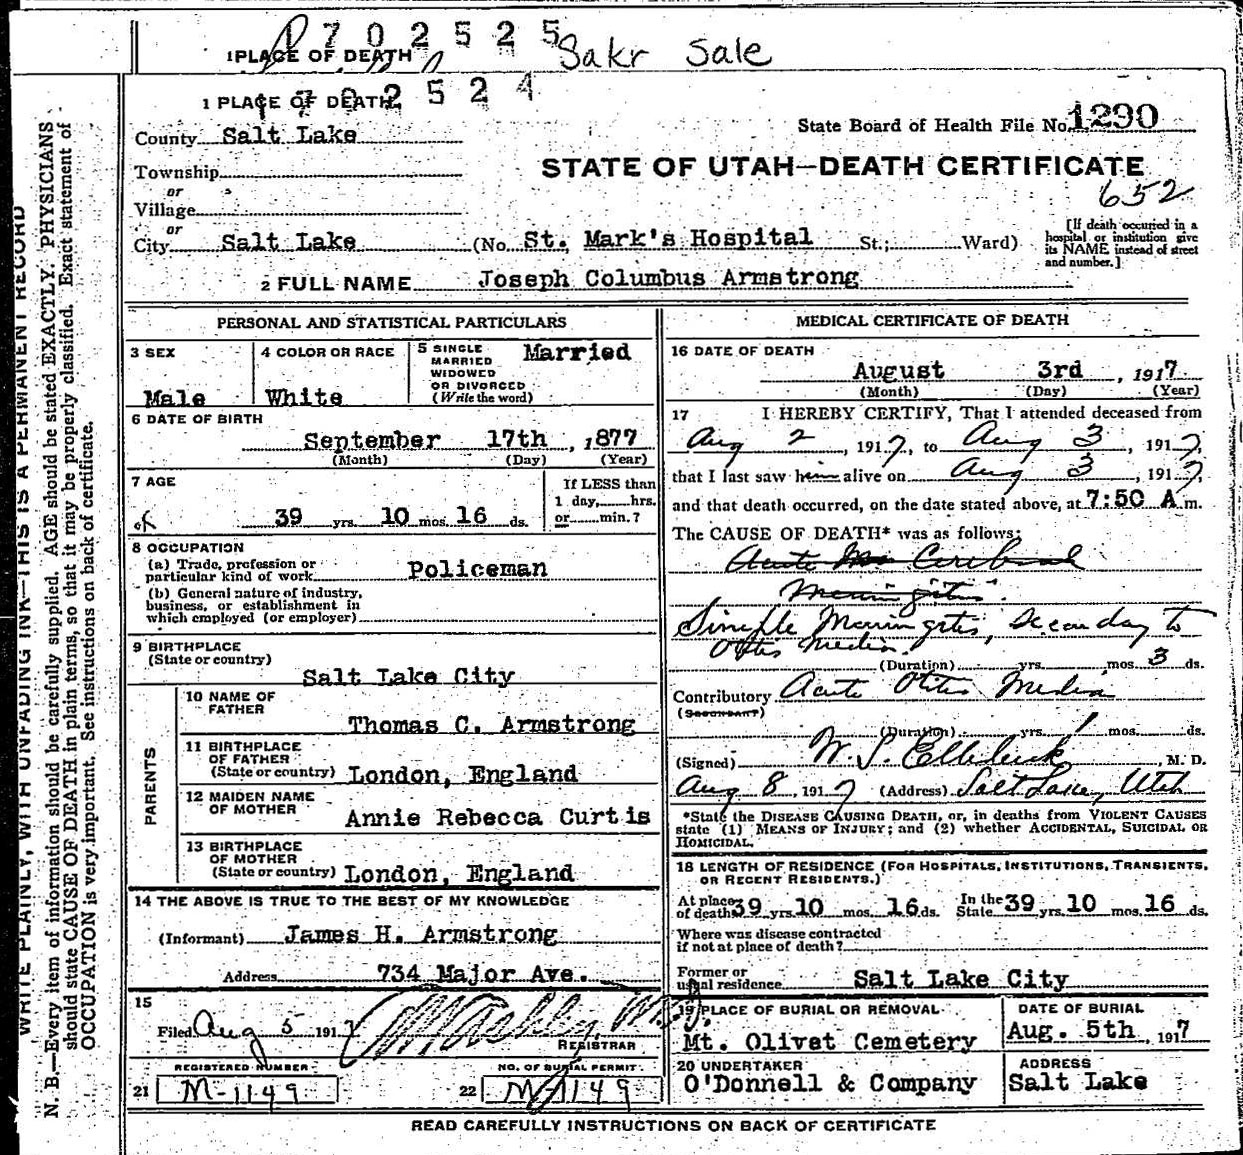 1702525
1 PLACE OF DEATH
Sakr Sale
1702524
1 PLACE OF DEATH
County Salt Lake
State Board of Health File No. 1290
STATE OF UTAH—DEATH CERTIFICATE
Township
652
or
Village
or
City Salt Lake (No. St. Mark's Hospital St.; Ward)
[If death occurred in a hospital or institution give its NAME instead of street and number.]
2 FULL NAME Joseph Columbus Armstrong
PERSONAL AND STATISTICAL PARTICULARS
3 SEX
Male
4 COLOR OR RACE
White
5 SINGLE MARRIED WIDOWED OR DIVORCED (Write the word)
Married
6 DATE OF BIRTH
September 17th, 1877
(Month) (Day) (Year)
7 AGE
39 yrs. 10 mos. 16 ds.
If LESS than
1 day, hrs.
or min.?
8 OCCUPATION
(a) Trade, profession or
particular kind of work Policeman
(b) General nature of industry,
business, or establishment in
which employed (or employer)
9 BIRTHPLACE
(State or country)
Salt Lake City
PARENTS
10 NAME OF FATHER
Thomas C. Armstrong
11 BIRTHPLACE OF FATHER
(State or country) London, England
12 MAIDEN NAME OF MOTHER
Annie Rebecca Curtis
13 BIRTHPLACE OF MOTHER
(State or country) London, England
14 THE ABOVE IS TRUE TO THE BEST OF MY KNOWLEDGE
(Informant) James H. Armstrong
Address 734 Major Ave.
15
Filed Aug 5 1917
REGISTRAR
REGISTERED NUMBER
21 M-1149
NO. OF BURIAL PERMIT
22 M-1149
MEDICAL CERTIFICATE OF DEATH
16 DATE OF DEATH
August 3rd, 1917
(Month) (Day) (Year)
17 I HEREBY CERTIFY, That I attended deceased from
Aug 2, 1917, to Aug 3, 1917,
that I last saw him alive on Aug 3, 1917,
and that death occurred, on the date stated above, at 7:50 A m.
The CAUSE OF DEATH* was as follows:
Acute Cerebral
Meningitis.
Simple Meningitis, Secondary to
Otitis Media.
(Duration) yrs. mos. 3 ds.
Contributory Acute Otitis Media
(SECONDARY)
(Duration) yrs. 1 mos. ds.
(Signed) W. S. Ellerbeck, M. D.
Aug 8, 1917 (Address) Salt Lake, Utah
*State the DISEASE CAUSING DEATH, or, in deaths from VIOLENT CAUSES
state (1) MEANS OF INJURY; and (2) whether ACCIDENTAL, SUICIDAL OR
HOMICIDAL.
18 LENGTH OF RESIDENCE (FOR HOSPITALS, INSTITUTIONS, TRANSIENTS,
OR RECENT RESIDENTS.)
At place of death 39 yrs. 10 mos. 16 ds. In the State 39 yrs. 10 mos. 16 ds.
Where was disease contracted
if not at place of death?
Former or
usual residence Salt Lake City
19 PLACE OF BURIAL OR REMOVAL
Mt. Olivet Cemetery
DATE OF BURIAL
Aug. 5th, 1917
20 UNDERTAKER
O'Donnell & Company
ADDRESS
Salt Lake
READ CAREFULLY INSTRUCTIONS ON BACK OF CERTIFICATE
WRITE PLAINLY, WITH UNFADING INK—THIS IS A PERMANENT RECORD
N. B.—Every item of information should be carefully supplied. AGE should be stated EXACTLY. PHYSICIANS
should state CAUSE OF DEATH in plain terms, so that it may be properly classified. Exact statement of
OCCUPATION is very important. See instructions on back of certificate.